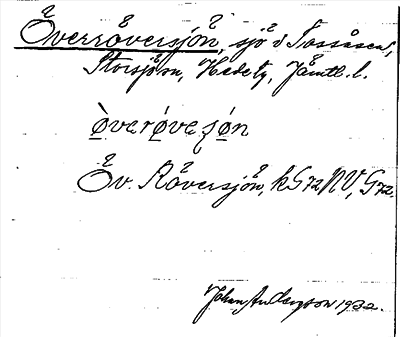 Överröversjön, sjö i Tossåsen,
Storsjö sn, Hede tg, Jämtl. l.
òveróveʃón
Öv. Röversjön, k G72NV, G72.
Johan Anderzon 1932.